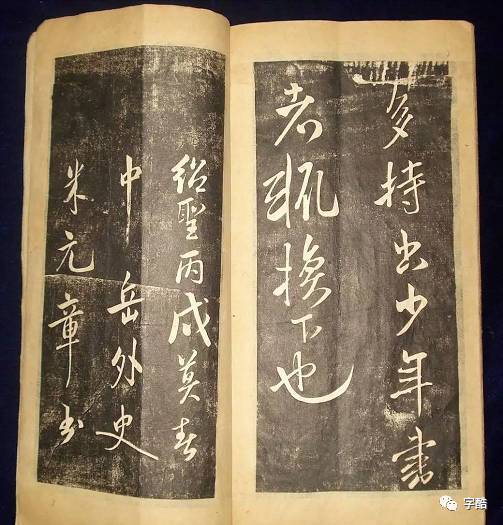 多持出少年書
者輒換下也
紹聖丙戌莫春
中岳外史
米元章書
字酷